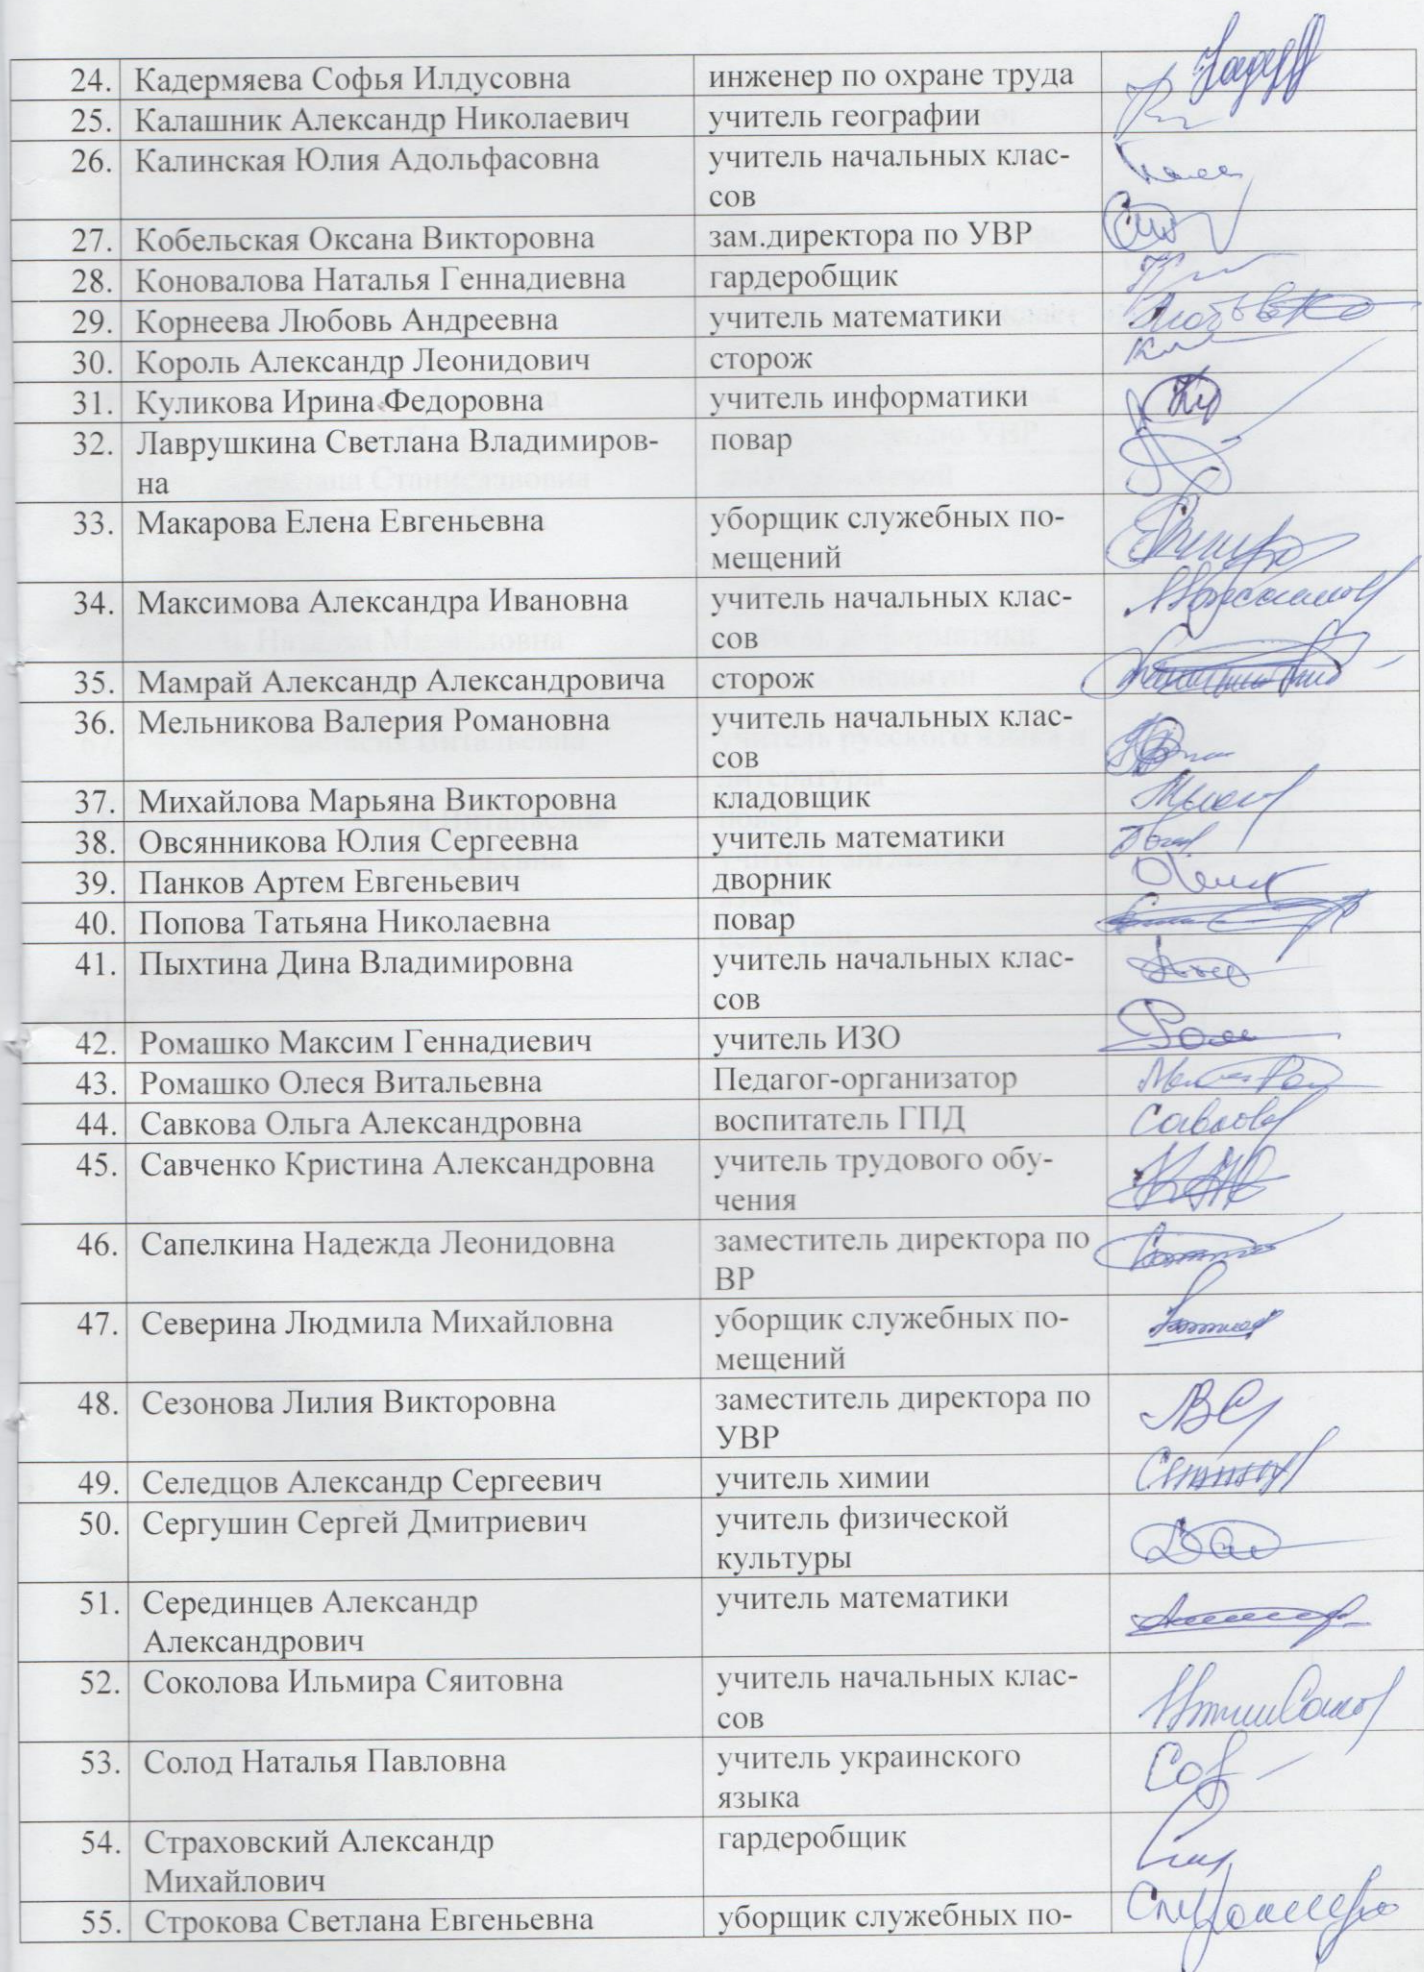 24. Кадермяева Софья Илдусовна инженер по охране труда
25. Калашник Александр Николаевич учитель географии
26. Калинская Юлия Адольфасовна учитель начальных клас-
сов
27. Кобельская Оксана Викторовна зам.директора по УВР
28. Коновалова Наталья Геннадиевна гардеробщик
29. Корнеева Любовь Андреевна учитель математики
30. Король Александр Леонидович сторож
31. Куликова Ирина Федоровна учитель информатики
32. Лаврушкина Светлана Владимиров- повар
на
33. Макарова Елена Евгеньевна уборщик служебных по-
мещений
34. Максимова Александра Ивановна учитель начальных клас-
сов
35. Мамрай Александр Александровича сторож
36. Мельникова Валерия Романовна учитель начальных клас-
сов
37. Михайлова Марьяна Викторовна кладовщик
38. Овсянникова Юлия Сергеевна учитель математики
39. Панков Артем Евгеньевич дворник
40. Попова Татьяна Николаевна повар
41. Пыхтина Дина Владимировна учитель начальных клас-
сов
42. Ромашко Максим Геннадиевич учитель ИЗО
43. Ромашко Олеся Витальевна Педагог-организатор
44. Савкова Ольга Александровна воспитатель ГПД
45. Савченко Кристина Александровна учитель трудового обу-
чения
46. Сапелкина Надежда Леонидовна заместитель директора по
ВР
47. Северина Людмила Михайловна уборщик служебных по-
мещений
48. Сезонова Лилия Викторовна заместитель директора по
УВР
49. Селедцов Александр Сергеевич учитель химии
50. Сергушин Сергей Дмитриевич учитель физической
культуры
51. Серединцев Александр учитель математики
Александрович
52. Соколова Ильмира Сяитовна учитель начальных клас-
сов
53. Солод Наталья Павловна учитель украинского
языка
54. Страховский Александр гардеробщик
Михайлович
55. Строкова Светлана Евгеньевна уборщик служебных по-